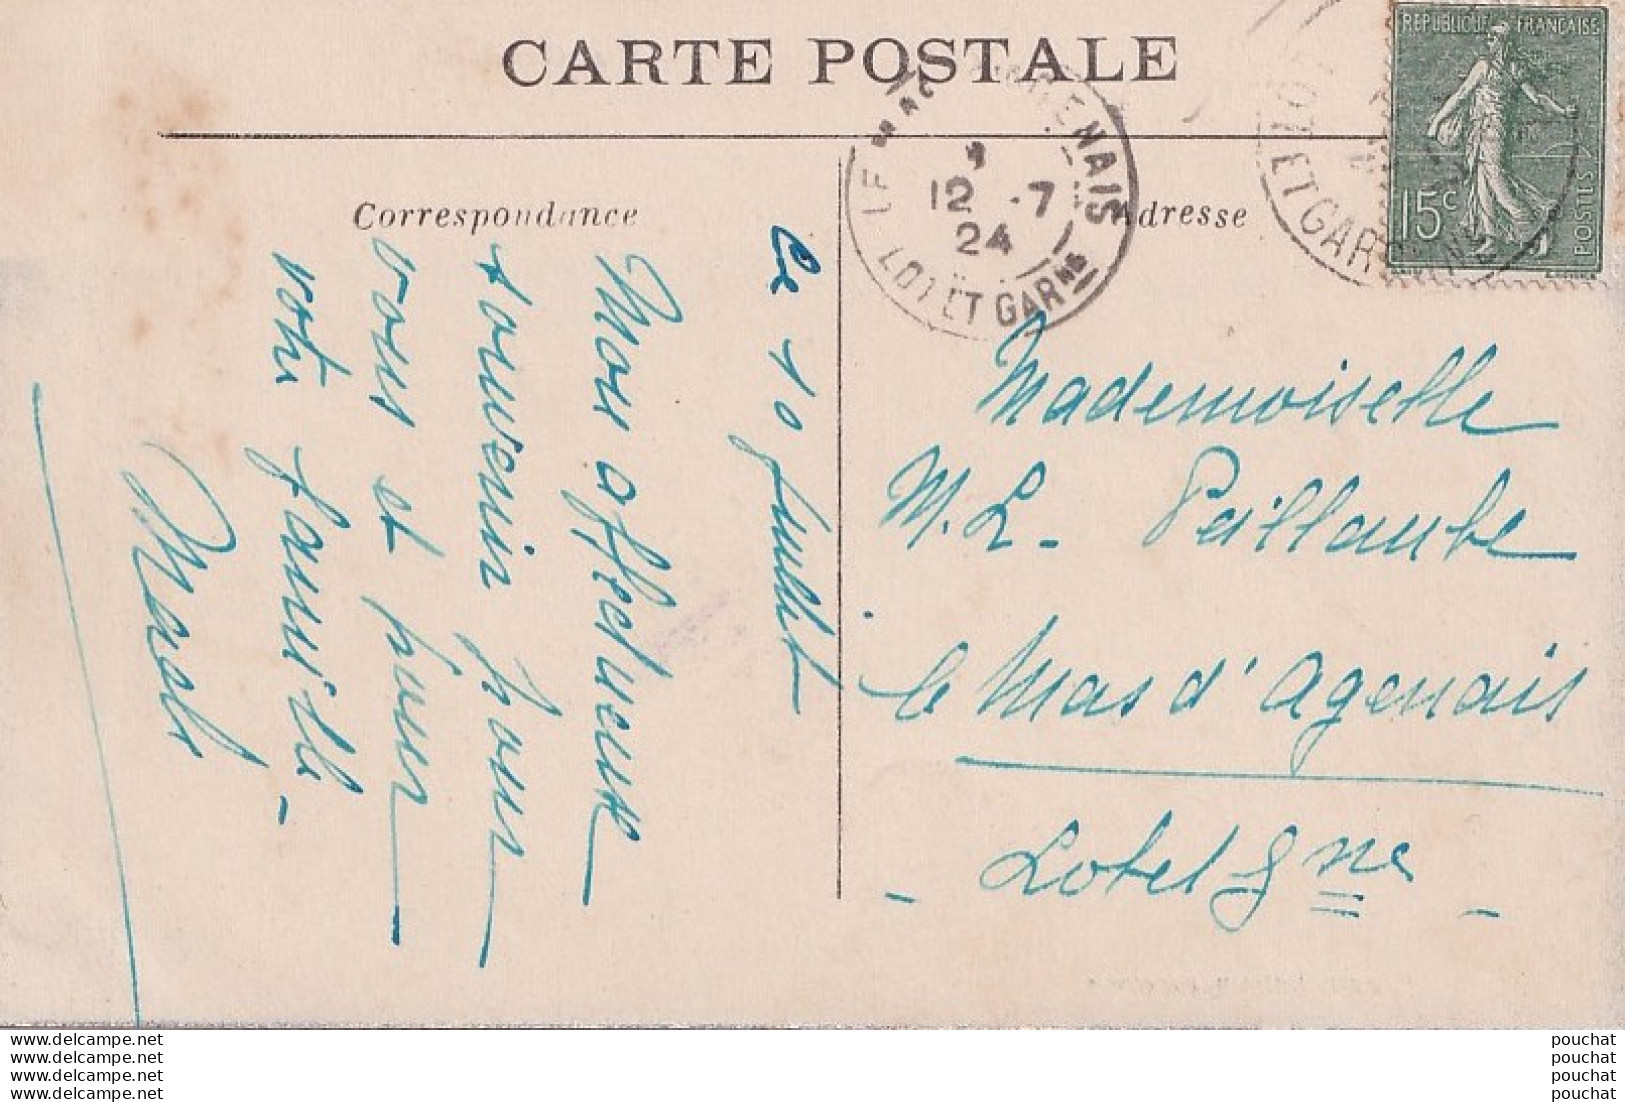 CARTE POSTALE
Correspondance
Adresse
RÉPUBLIQUE FRANÇAISE
15c
POSTES
12 .7
24
LOT ET GARNE
ET GAR
Le 10 Juillet
Mon affectueux
souvenir pour
vous et pour
votre famille -
Mademoiselle
M. L. Paillaube
Le Mas d'Agenais
- Lot et Gne -
www.delcampe.net
www.delcampe.net
www.delcampe.net
www.delcampe.net
pouchat
pouchat
pouchat
pouchat